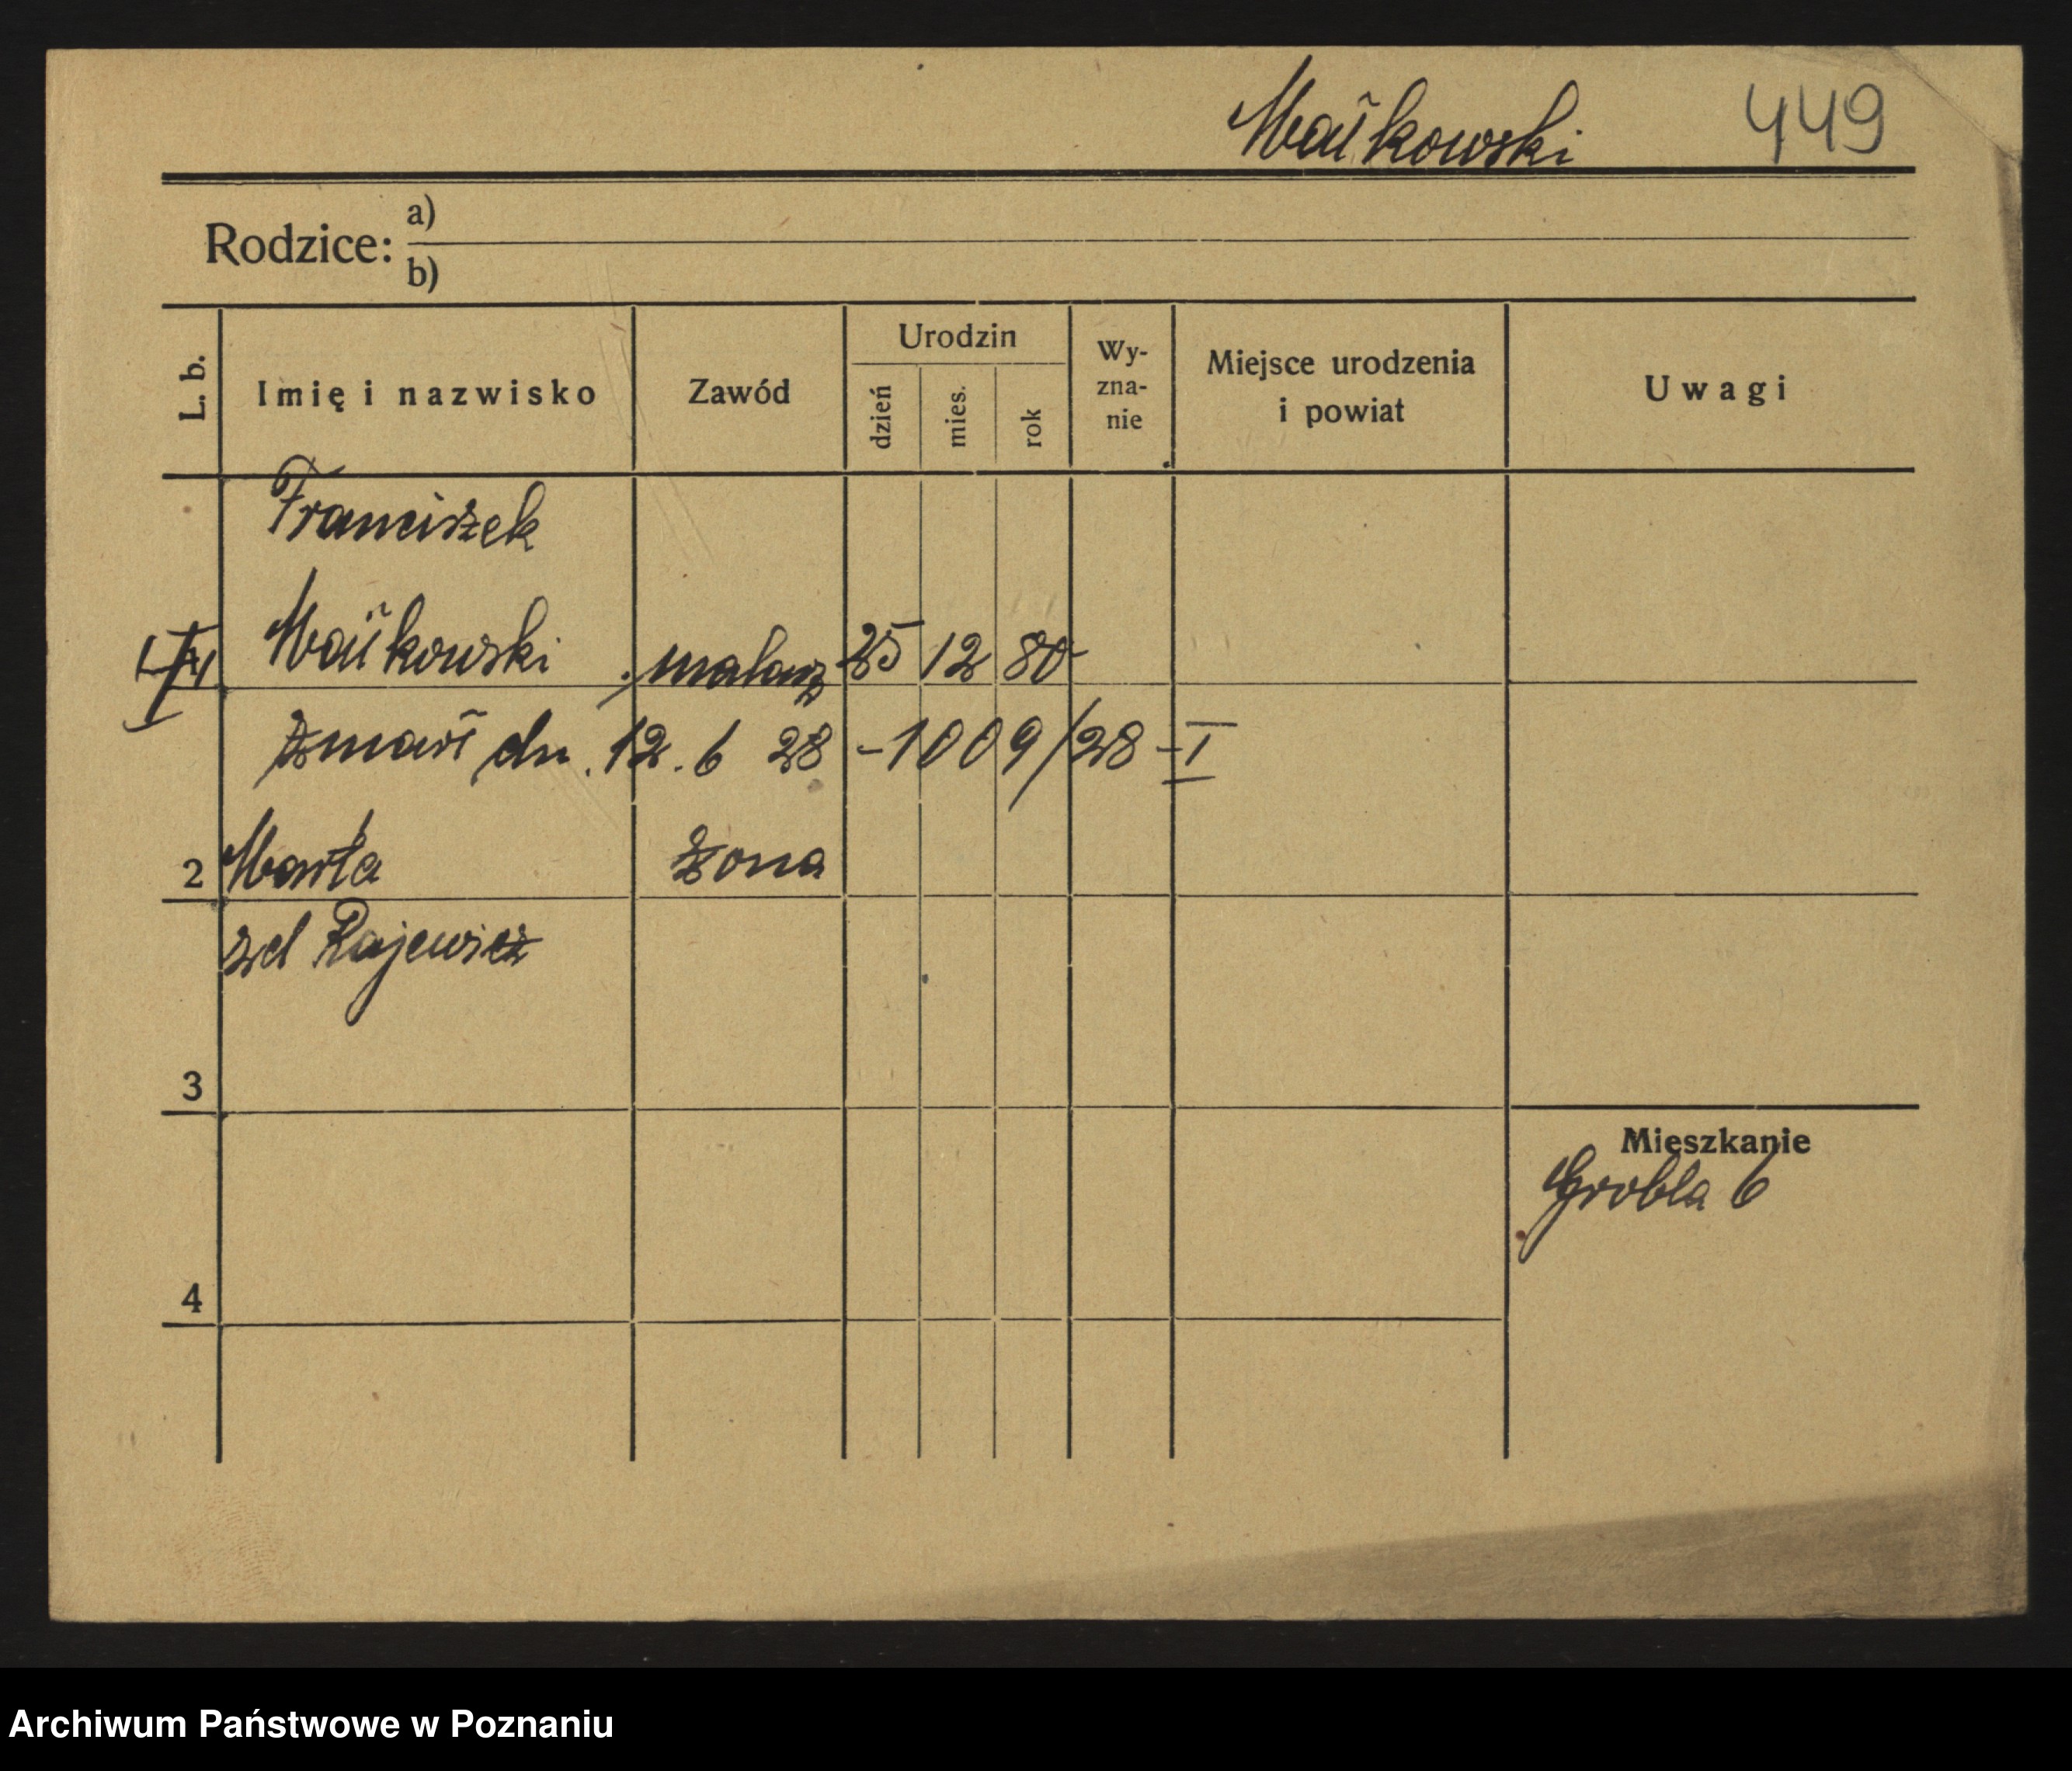 Mańkowski 449
Rodzice: a)
b)
L. b.
Imię i nazwisko
Zawód
Urodzin
dzień
mies.
rok
Wy-
zna-
nie
Miejsce urodzenia
i powiat
Uwagi
Franciszek
Mańkowski malarz 25 12 80
zmarł dn. 12. 6 28 - 1009/28 - I
2 Marta żona
zd Rajewicz
3
Mieszkanie
Grobla 6
4
Archiwum Państwowe w Poznaniu